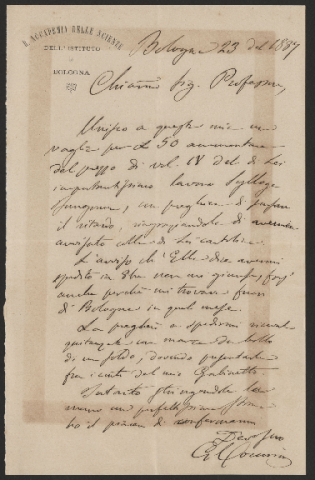 R. ACCADEMIA DELLE SCIENZE
DELL'ISTITUTO
BOLOGNA
Bologna 23 1887
Chiarmo Sig. Professore,
Unisco a questa mia un
vaglia per £ 50 ammontare
del prezzo di vol. IV del di Lei
importantissimo lavoro Sylloge
fungorum, e La pregherei di
il ritardo, ringraziandola di avermi
avvisato colla di Lei cartolina.
L'avviso ch'Ella dice avermi
spedito in 8bre non mi giunse, forse
anche perchè mi trovavo fuori
di Bologna in quel mese.
La pregherei a spedirmi
quitanza con marca da bollo
di un soldo, dovendo presentarla
fra i conti del mio Gabinetto
Intanto stringendole la
mano con
ho il piacere di confermarmi
Devotissimo
G. Cocconi